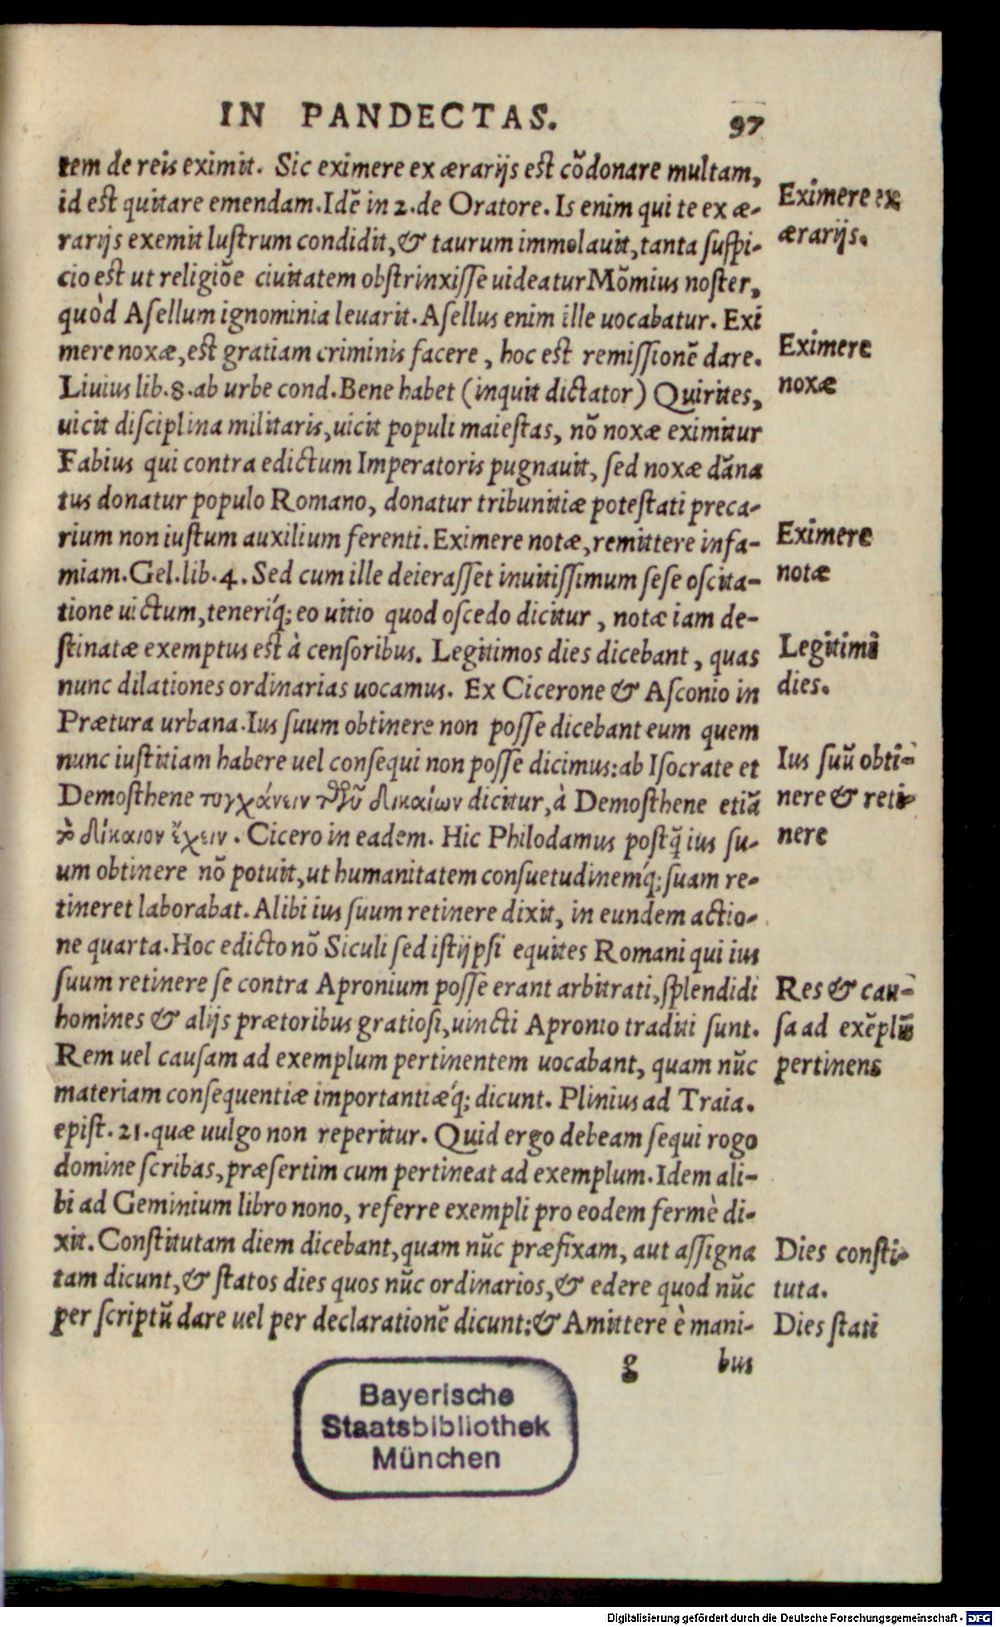 IN PANDECTAS. 97
tem de reis eximit. Sic eximere ex ærarijs est cōdonare multam,
id est quitare emendam. Idē in 2. de Oratore. Is enim qui te ex æ-
rarijs exemit lustrum condidit, & taurum immolauit, tanta suspi-
cio est ut religiōe ciuitatem obstrinxisse uideatur Mōmius noster,
quòd Asellum ignominia leuarit. Asellus enim ille uocabatur. Exi
mere noxæ, est gratiam criminis facere, hoc est remissionē dare.
Liuius lib. 8. ab urbe cond. Bene habet (inquit dictator) Quirites,
uicit disciplina militaris, uicit populi maiestas, nō noxæ eximitur
Fabius qui contra edictum Imperatoris pugnauit, sed noxæ dāna
tus donatur populo Romano, donatur tribunitiæ potestati preca-
rium non iustum auxilium ferenti. Eximere notæ, remittere infa-
miam. Gel. lib. 4. Sed cum ille deierasset inuitissimum sese oscita-
tione uictum, teneriq́; eo uitio quod oscedo dicitur, notæ iam de-
stinatæ exemptus est à censoribus. Legitimos dies dicebant, quas
nunc dilationes ordinarias uocamus. Ex Cicerone & Asconio in
Prætura urbana. Ius suum obtinere non posse dicebant eum quem
nunc iustitiam habere uel consequi non posse dicimus: ab Isocrate et
Demosthene τυγχάνειν τῶν δικαίων dicitur, à Demosthene etiā
τὸ δίκαιον ἔχειν. Cicero in eadem. Hic Philodamus postq̄ ius su-
um obtinere nō potuit, ut humanitatem consuetudinemq́; suam re-
tineret laborabat. Alibi ius suum retinere dixit, in eundem actio-
ne quarta. Hoc edicto nō Siculi sed istijpsi equites Romani qui ius
suum retinere se contra Apronium posse erant arbitrati, splendidi
homines & alijs prætoribus gratiosi, uincti Apronio traditi sunt.
Rem uel causam ad exemplum pertinentem uocabant, quam nūc
materiam consequentiæ importantiæq́; dicunt. Plinius ad Traia.
epist. 21. quæ uulgo non reperitur. Quid ergo debeam sequi rogo
domine scribas, præsertim cum pertineat ad exemplum. Idem ali-
bi ad Geminium libro nono, referre exempli pro eodem fermè di-
xit. Constitutam diem dicebant, quam nūc præfixam, aut assigna
tam dicunt, & statos dies quos nūc ordinarios, & edere quod nūc
per scriptū dare uel per declarationē dicunt: & Amittere è mani-
g bus
Eximere ex
ærarijs.
Eximere
noxæ
Eximere
notæ
Legitimi
dies.
Ius suū obti-
nere & reti-
nere
Res & cau-
sa ad exēplū
pertinens
Dies consti-
tuta.
Dies stati
Bayerische
Staatsbibliothek
München
Digitalisierung gefördert durch die Deutsche Forschungsgemeinschaft - DFG